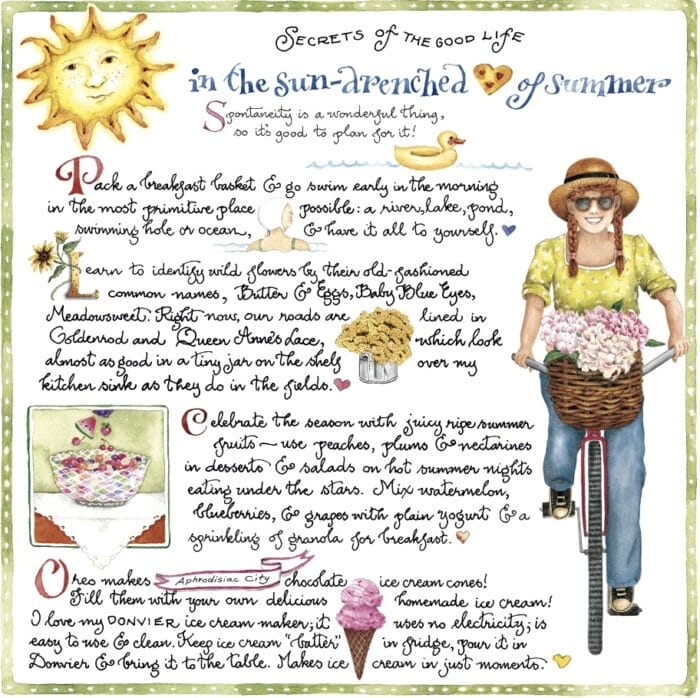 SECRETS OF THE GOOD LIFE
in the sun-drenched of summer
Spontaneity is a wonderful thing,
so it's good to plan for it!
Pack a breakfast basket & go swim early in the morning
in the most primitive place possible: a river, lake, pond,
swimming hole or ocean, & have it all to yourself.
Learn to identify wild flowers by their old-fashioned
common names, Butter & Eggs, Baby Blue Eyes,
Meadowsweet. Right now, our roads are lined in
Goldenrod and Queen Anne's Lace, which look
almost as good in a tiny jar on the shelf over my
kitchen sink as they do in the fields.
Celebrate the season with juicy ripe summer
fruits — use peaches, plums & nectarines
in desserts & salads on hot summer nights
eating under the stars. Mix watermelon,
blueberries, & grapes with plain yogurt & a
sprinkling of granola for breakfast.
Oreo makes Aphrodisiac City chocolate ice cream cones!
Fill them with your own delicious homemade ice cream!
I love my DONVIER ice cream maker; it uses no electricity; is
easy to use & clean. Keep ice cream "batter" in fridge, pour it in
Donvier & bring it to the table. Makes ice cream in just moments.